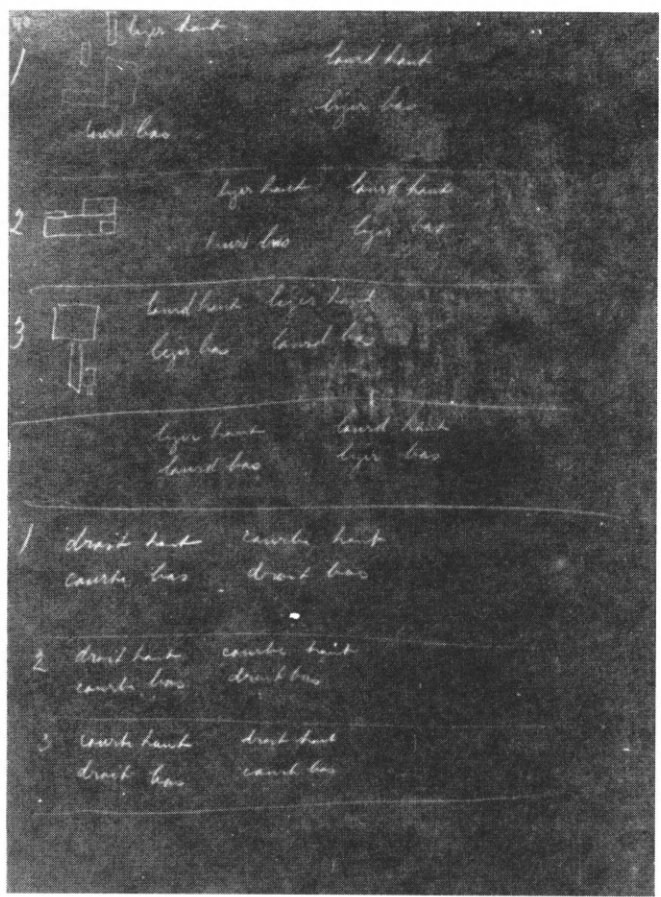 leger haut
1 lourd haut
leger bas
lourd bas
leger haut lourd haut
2 lourd bas leger bas
lourd haut leger haut
3 leger bas lourd bas
leger haut lourd haut
lourd bas leger bas
1 droit haut courbe haut
courbe bas droit bas
2 droit haut courbe haut
courbe bas droit bas
3 courbe haut droit haut
droit bas courb bas